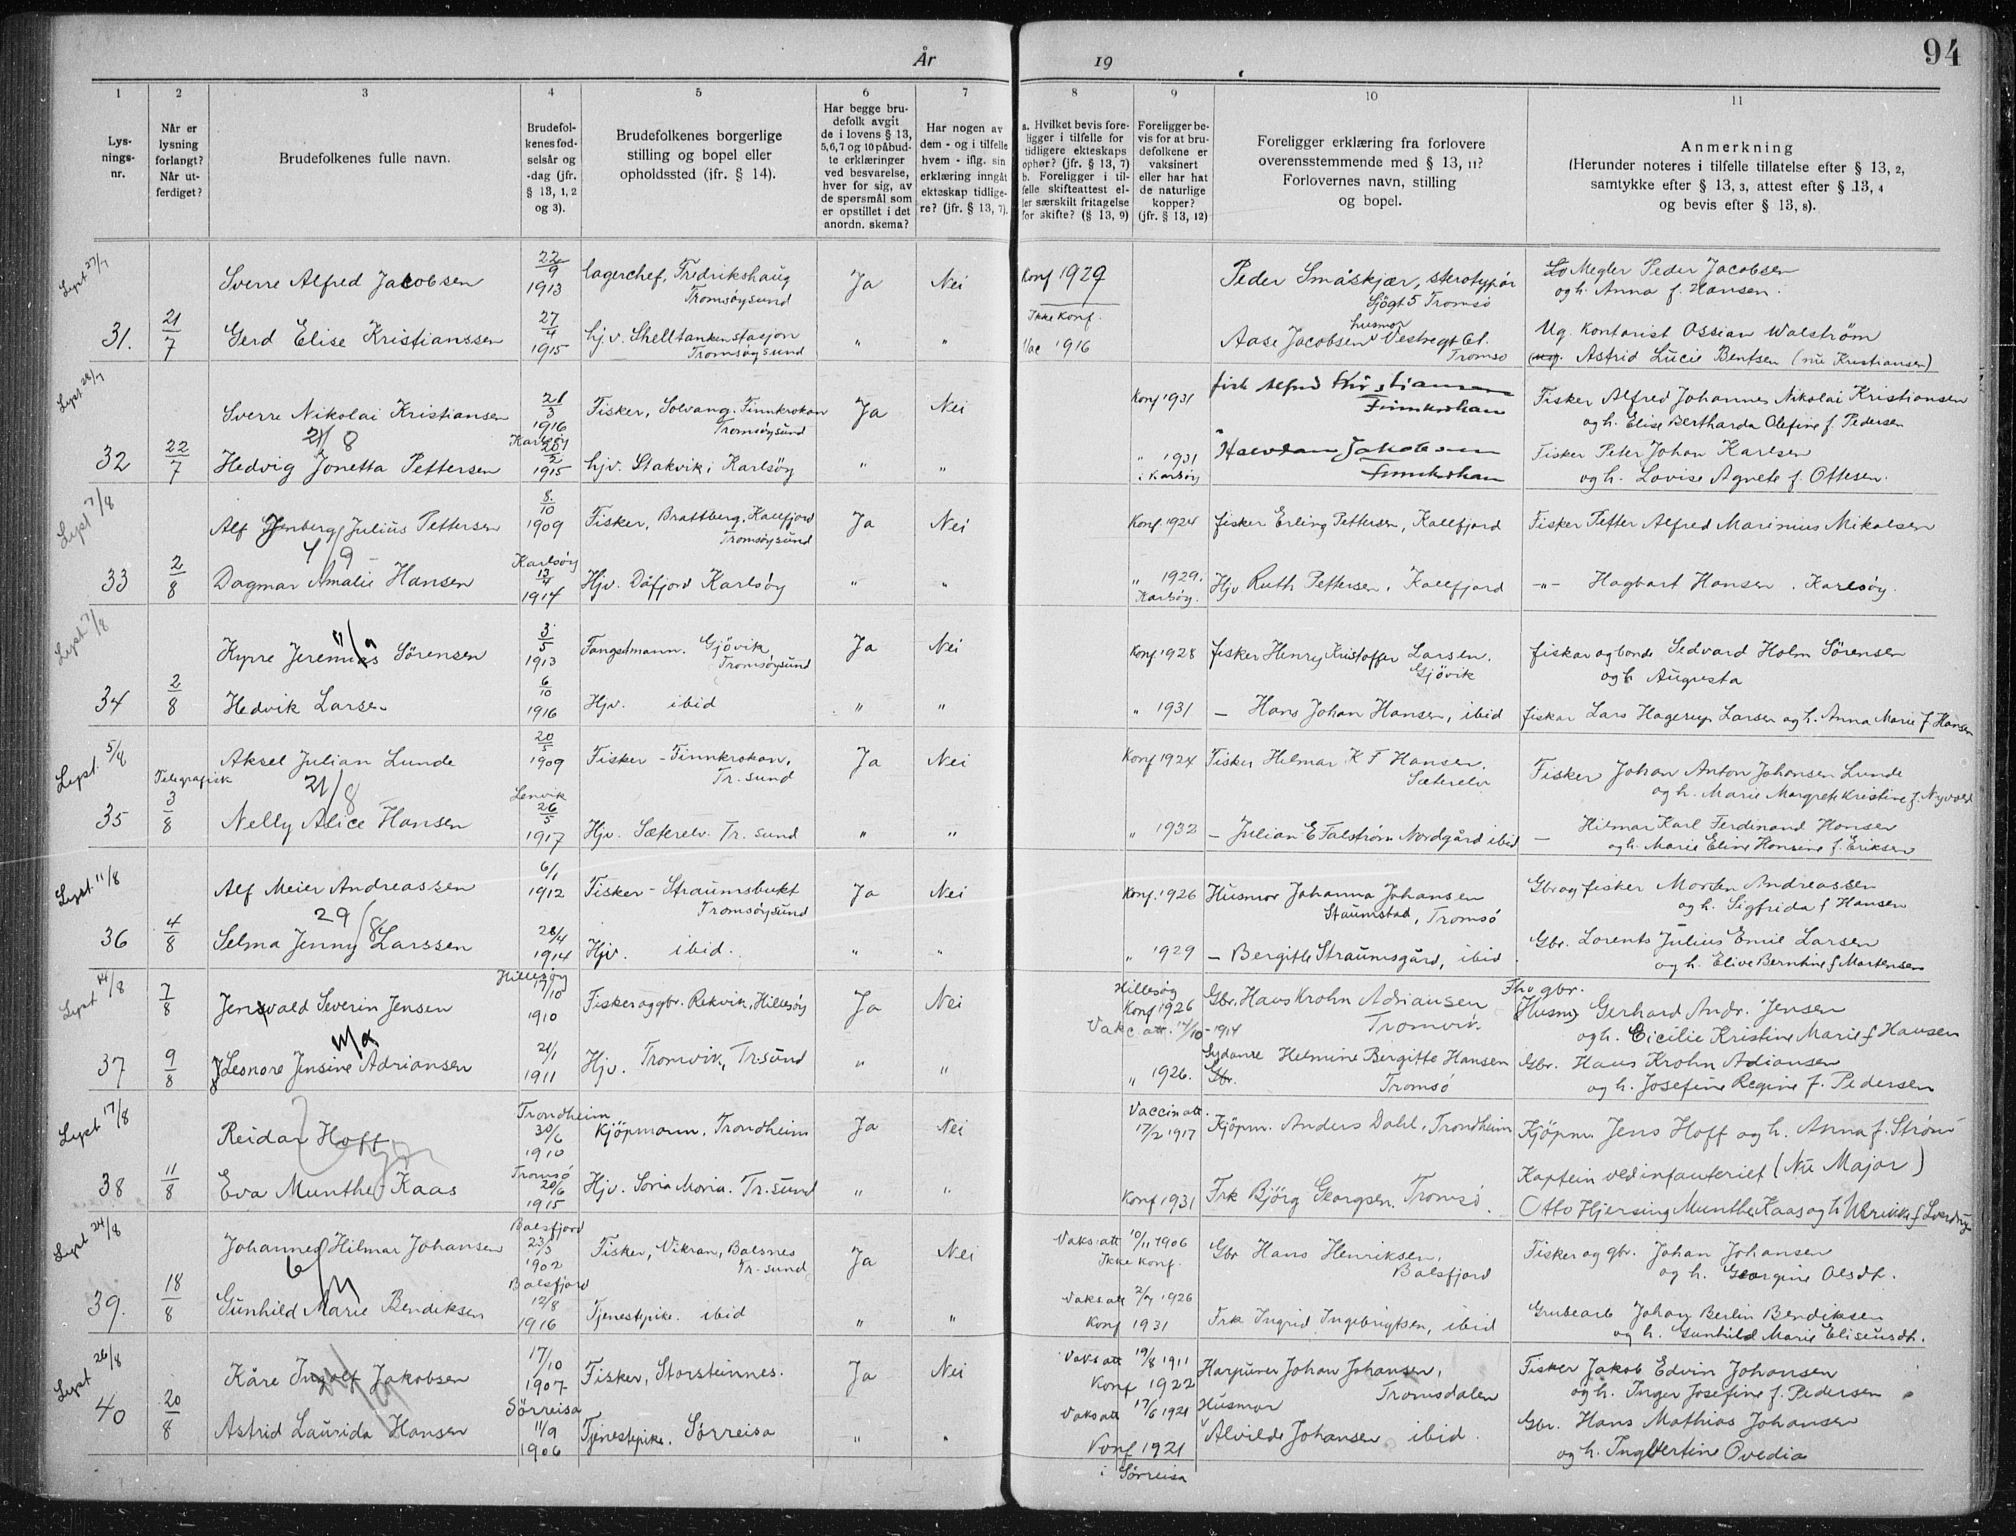 År
19
94
1
2
3
4
5
6
7
8
9
10
11
Lys-
nings-
nr.
Når er
lysning
forlangt?
Når ut-
ferdiget?
Brudefolkenes fulle navn.
Brudefol-
kenes fød-
selsår og
-dag (jfr.
§ 13, 1, 2
og 3).
Brudefolkenes borgerlige
stilling og bopel eller
opholdssted (ifr. § 14).
Har begge bru-
defolk avgit
de i lovens § 13,
5,6,7 og 10 påbud-
te erklæringer
ved besvarelse,
hver for sig, av
de spørsmål som
er opstillet i det
anordn. skema?
Har nogen av
dem - og i tilfelle
hvem - iflg. sin
erklæring inngåt
ekteskap tidlige-
re? (jfr. § 13, 7).
a. Hvilket bevis fore-
ligger i tilfelle for
tidligere ekteskaps
ophør? (jfr. § 13, 7)
b. Foreligger i til-
felle skifteattest el-
ler særskilt fritagelse
for skifte? (§ 13, 9)
Foreligger be-
vis for at bru-
defolkene er
vaksinert
eller har hat
de naturlige
kopper?
(jfr. § 13, 12)
Foreligger erklæring fra forlovere
overensstemmende med § 13, 11?
Forlovernes navn, stilling
og bopel.
Anmerkning
(Herunder noteres i tilfelle tillatelse efter § 13, 2,
samtykke efter § 13, 3, attest efter § 13, 4
og bevis efter § 13, 8).
Lyst 27/7
Sverre Alfred Jacobsen 22/9 1913 lagerchef, Fredrikshaug Tromsøysund Ja Nei Konf 1929 Peder Småskjær, sterotypør Sjøgt 5 Tromsø Megler Peder Jacobsen og h. Anna f. Hansen.
31. 21/7 Gerd Elise Kristianssen 27/4 1915 hjv. Shelltankenstasjon Tromsøysund " " Ikke konf. Vac 1916 Aase Jacobsen husmor Vestregt 61. Tromsø Ug. kontorist Ossian Walstrøm Astrid Lucie Bentsen (nu Kristiansen)
Lyst 28/7
Sverre Nikolai Kristiansen 21/3 1916 Fisker, Solvang. Finnkroken Tromsøysund Ja Nei Konf 1931 fisk Alfred Kristiansen Finnkroken Fisker Alfred Johannes Nikolai Kristiansen og h. Elise Bertharda Olefine f. Pedersen
21/8
32 22/7 Hedvig Jonetta Pettersen Karlsøy 20/2 1915 hjv. Stakvik i Karlsøy " " " 1931 i Karlsøy Halvdan Jakobsen Finnkroken Fisker Peter Johan Karlsen og h. Lovise Agnete f. Ottesen.
Lyst 7/8
Alf Julius Pettersen 8/10 1909 Fisker, Brattberg, Kallfjord Tromsøysund Ja Nei Konf 1924 fisker Erling Pettersen, Kallfjord Fisker Petter Alfred Marinius Mikalsen
4/9
33 2/8 Dagmar Amalie Hansen Karlsøy 13/4 1914 Hjv. Dåfjord Karlsøy " " " 1929. Karlsøy. Hjv Ruth Pettersen, Kallfjord -"- Hagbart Hansen. Karlsøy.
Lyst 7/8
Kyrre Jeremias Sørensen 3/5 1913 Fangstmann. Gjövik Tromsøysund Ja Nei Konf 1928 fisker Henry Kristoffer Larsen. Gjövik fisker og bonde Sedvard Holm Sørensen og h Augusta
34 2/8 Hedvik Larsen 6/10 1916 Hjv. ibid " " " 1931 – Hans Johan Hansen, ibid fisker Lars Hagerup Larsen og h. Anna Marie f Hansen
Lyst. 5/8
Aksel Julian Lunde 20/5 1909 Fisker - Finnkroken, Tr. sund Ja Nei Konf 1924 Fisker Hilmar K F Hansen. Sæterelv Fisker Johan Anton Johansen Lunde og h. Marie Margrete Kristine f. Nyvold
Telegrafisk
21/8
35 3/8 Nelly Alice Hansen Lenvik 26/5 1917 Hjv. Sæterelv. Tr. sund " " " 1932 – Julian E Falstrøm Nordgård ibid – Hilmar Karl Ferdinand Hansen og h. Marie Eline Hansine f. Eriksen
Lyst. 11/8
Alf Meier Andreassen 6/1 1912 Fisker - Straumsbukt Tromsøysund Ja Nei Konf. 1926 Husmor Johanna Johansen Staumstad, Tromsö Gbr og fisker Morten Andreassen og h. Sigfrida f Hansen
29/8
36 4/8 Selma Jenny Larssen 28/4 1914 Hjv. ibid. " " " 1929 – Bergitte Straumsgård, ibid Gbr. Lorents Julius Emil Larsen og h. Elive Berntine f Martensen
Lyst 14/8
7/8 Jensvald Severin Jensen Hillesøy 17/10 1910 Fisker og gbr. Rekvik, Hillesøy Ja Nei Hillesøg Konf 1926 Vacc. att. 14/10 - 1914 Gbr. Hans Krohn Adriansen Tromvik. Fhv gbr. Gerhard Andr. Jensen og h. Cicilie Kristine Marie f Hansen
37 9/8 Leonore Jensine Adriansen 21/1 1911 Hjv. Tromvik, Tr.sund " " " 1926. Sydame Helmine Bergitte Hansen Tromsö Gbr. Hans Krohn Adiansen og h. Josefine Regine f. Pedersen
Lyst 17/8
Reidar Hoff Trondheim 30/6 1910 Kjöpmann, Trondheim Ja Nei Vaccin att. 17/2 1917 Kjöpm. Anders Dahl, Trondheim Kjöpm. Jens Hoff og h. Anna f. Strøm
38 11/8 Eva Munthe-Kaas Tromsø 20/6 1915 Hjv. Soria Moria. Tr. sund " " Konf 1931 Frk Björg Georgsen, Tromsö. Kaptein ved infanteriet (Nu Major) Otto Hjersing Munthe Kaas og h Ulrikke f
Lyst 24/8
Johannes Hilmar Johansen Balsfjord 23/3 1902 Fisker, Vikran, Balsnes Tr. sund Ja Nei Vaks att 10/11 1906 Ikke konf. Gbr Hans Henriksen, Balsfjord Fisker og gbr. Johan Johansen og h. Georgine Olsdt.
39. 18/8 Gunhild Marie Bendiksen Balsfjord 12/8 1916 Tjenestepike. ibid " " Vaks att 2/7 1926 Konf 1931 Frk Ingrid Ingebrigtsen, ibid Grubearb Johan Berlin Bendiksen og h. Gunhild Marie Eliseusdt.
Lyst 26/8
Kåre Ingolf Jakobsen 17/10 1907 Fisker, Storsteinnes. Ja Nei Vaks att 19/8 1911 Konf 1922 Harpuner Johan Johansen, Tromsdalen Fisker Jakob Edvin Johansen og h. Inger Josefine f. Pedersen
40 20/8 Astrid Laurida Hansen Sörreisa 11/9 1906 Tjenestepike. Sörreisa " " Vaks att 17/6 1921 Konf 1921 i Sörreisa Husmor Alvilde Johansen ibid. Gbr. Hans Mathias Johansen og h. Ingbertine Ovedia